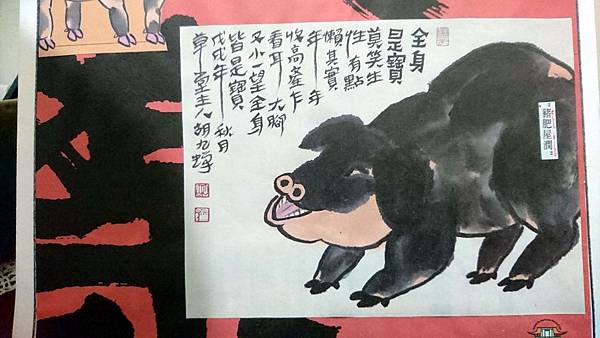 全身
是寶
莫笑生
性有點
懶其實
年年
將高產作
看耳大腳
又小一望全身
皆是寶
戊戌年秋月
草堂主人胡九蟬
豬肥屋潤